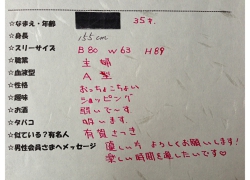 ☆なまえ・年齢 35才
☆身長 155cm
☆スリーサイズ B80 W63 H89
☆職業 主婦
☆血液型 A型
☆性格 おっちょこちょい
☆趣味 ショッピング
☆お酒 弱いでーす
☆タバコ 吸います
☆似ている?有名人 有賀さつき
☆男性会員さまへメッセージ 優しい方よろしくお願いします!
楽しい時間を過したいです♡